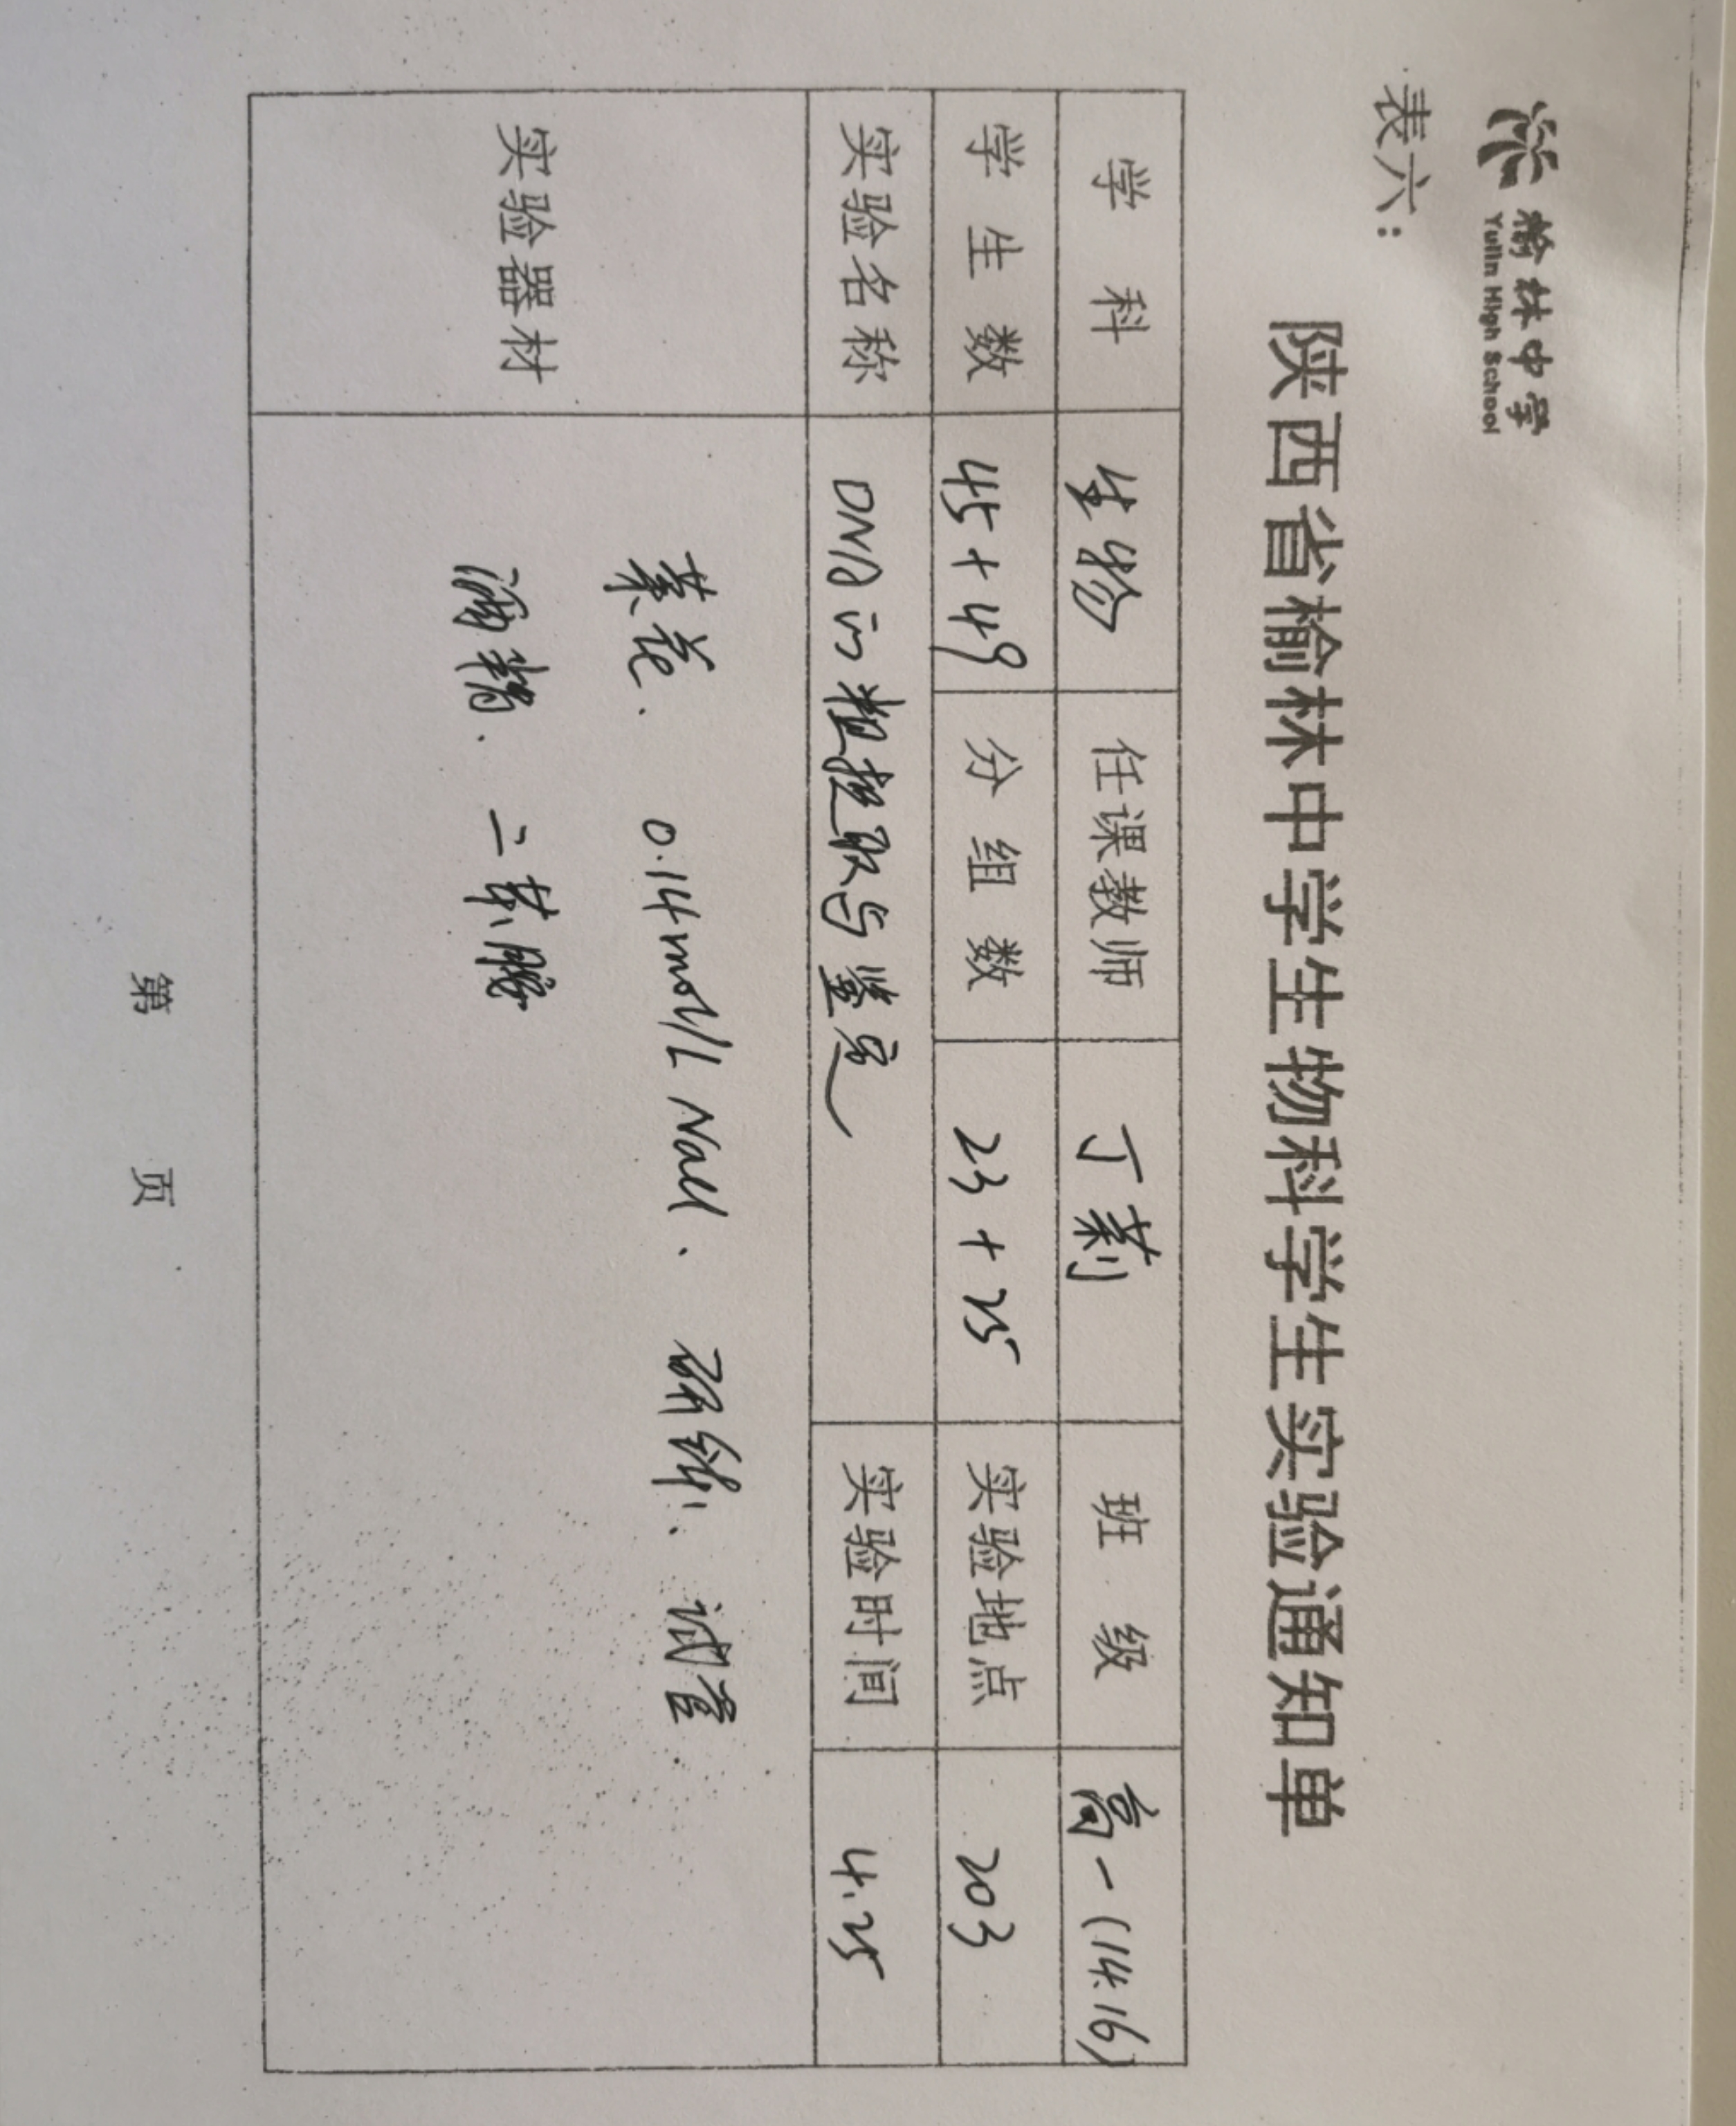 榆林中学
Yulin High School
表六：
陕西省榆林中学生物科学生实验通知单
学 科 生物 任课教师 丁莉 班 级 高一(14.16)
学 生 数 45+49 分 组 数 23+25 实验地点 203
实验名称 DNA的粗提取与鉴定 实验时间 4.25
实验器材 菜花. 0.14mol/L Nacl、 研钵、 试管.
酒精. 二苯胺
第 页